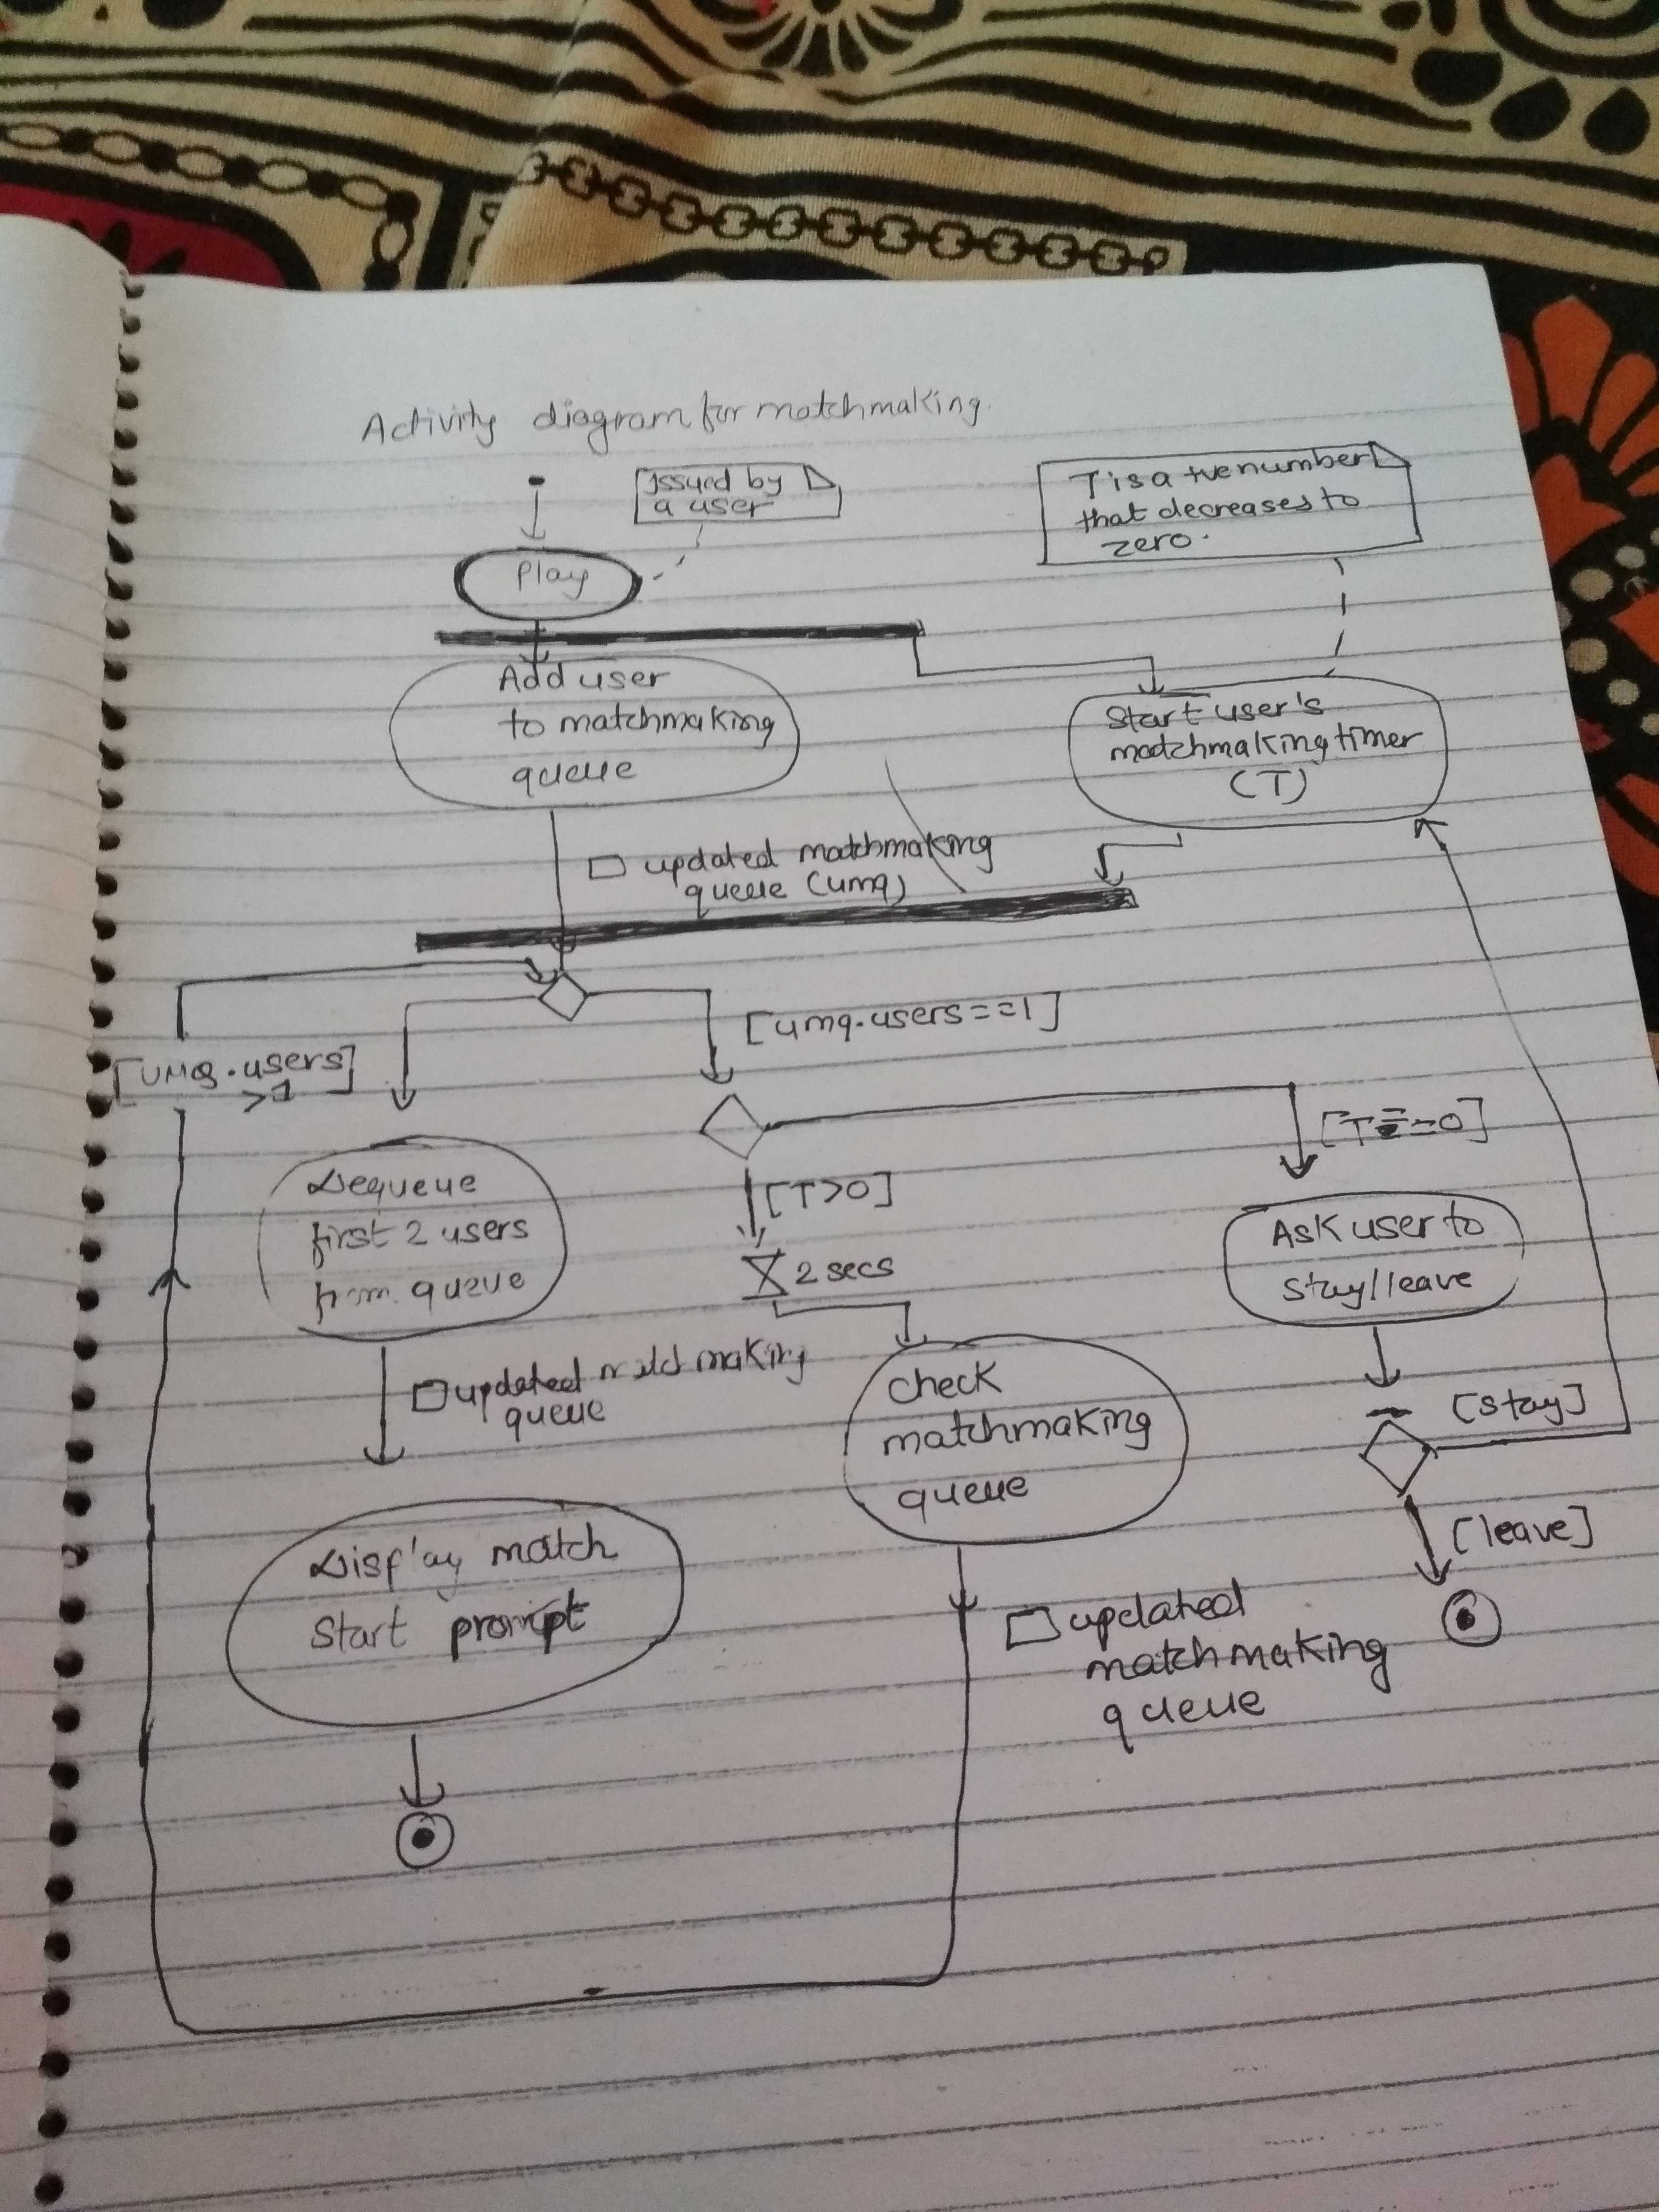 Activity diagram for matchmaking.
Issued by
a user
T is a +ve number
that decreases to
zero.
Play
Add user
to matchmaking
queue
Start user's
matchmaking timer
(T)
updated matchmaking
queue (umq)
[umq.users==1]
[UMQ.users]
>1
[T==0]
[T>0]
Dequeue
first 2 users
from queue
2 secs
Ask user to
stay/leave
updated matchmaking
queue
check
matchmaking
queue
[stay]
Display match
Start prompt
[leave]
updated
matchmaking
queue